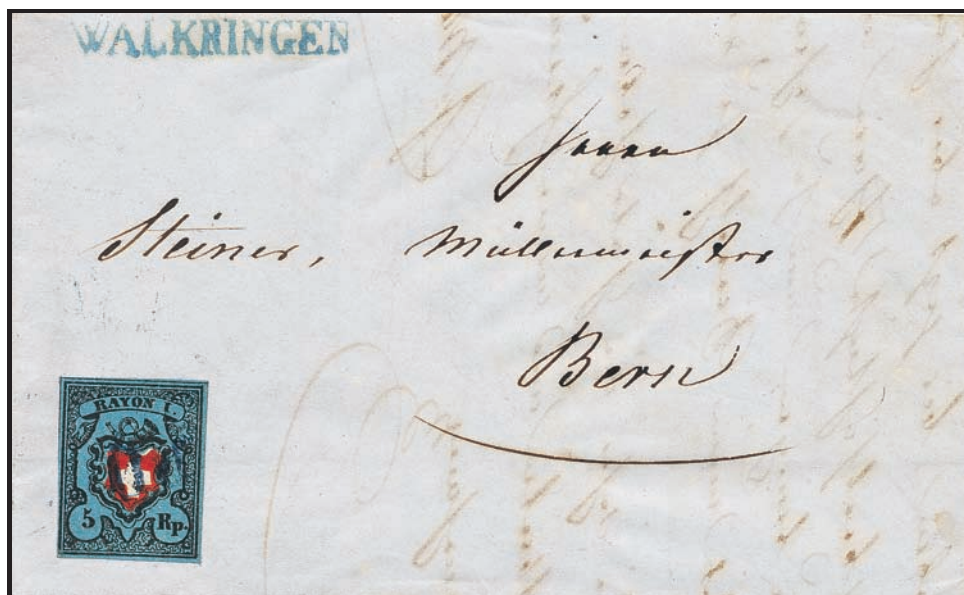 WALKRINGEN
Herrn
Steiner, Müllermeister
Bern
RAYON I.
5 Rp.